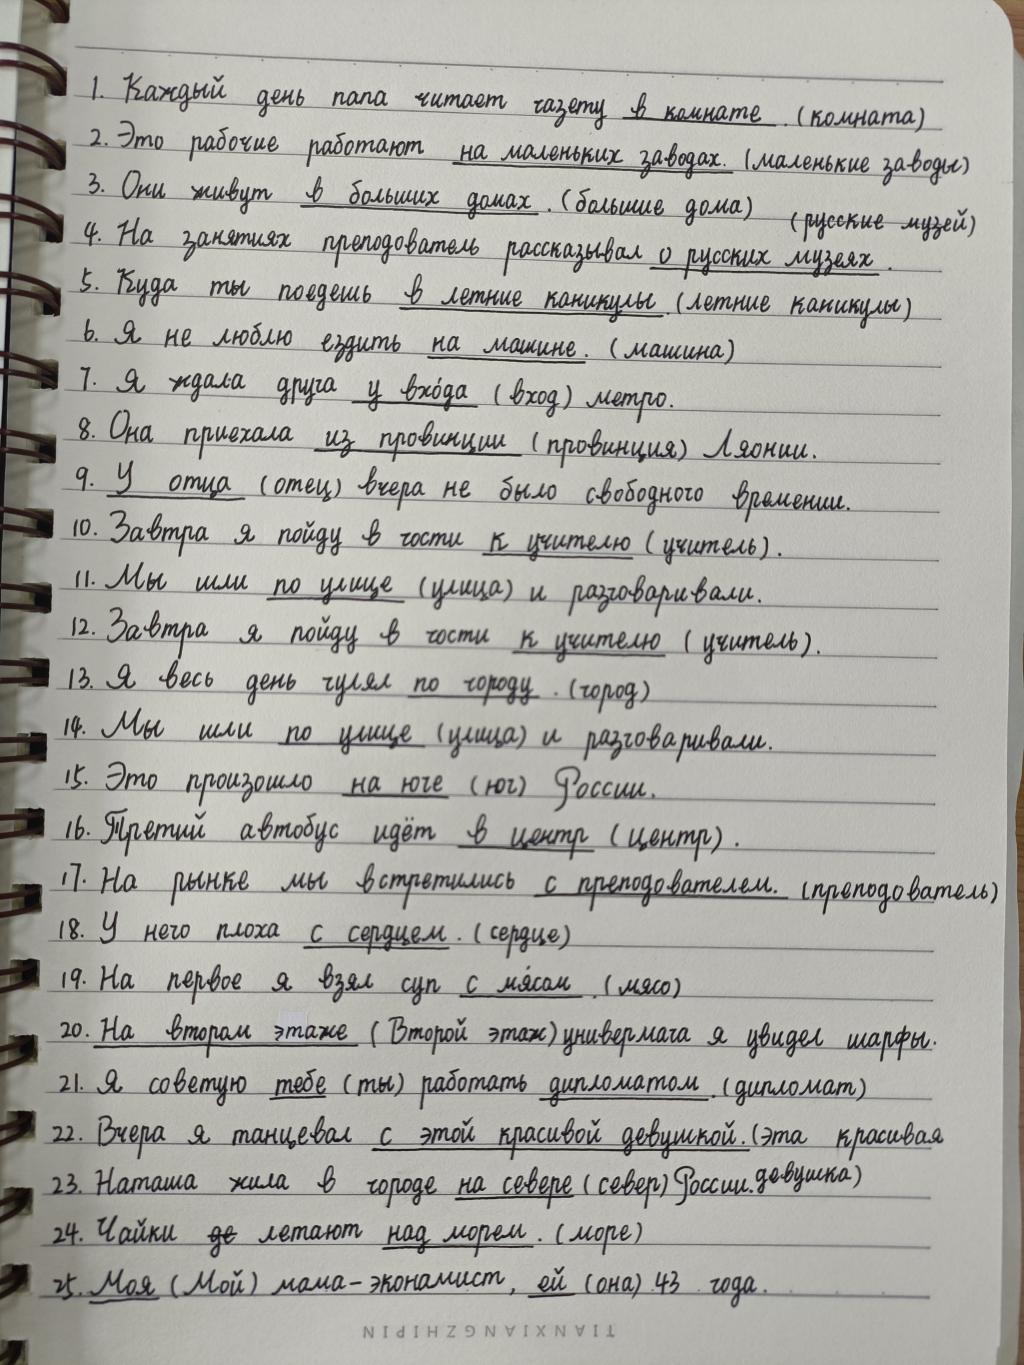 1. Каждый день папа читает газету в комнате. (комната)
2. Это рабочие работают на маленьких заводах. (маленькие заводы)
3. Они живут в больших домах. (большие дома)
(русские музей)
4. На занятиях преподователь рассказывал о русских музеях.
5. Куда ты поедешь в летние каникулы (летние каникулы)
6. Я не люблю ездить на машине. (машина)
7. Я ждала друга у вхо́да (вход) метро.
8. Она приехала из провинции (провинция) Ляонии.
9. У отца (отец) вчера не было свободного времении.
10. Завтра я пойду в гости к учителю (учитель).
11. Мы шли по улице (улица) и разговаривали.
12. Завтра я пойду в гости к учителю (учитель).
13. Я весь день гулял по городу. (город)
14. Мы шли по улице (улица) и разговаривали.
15. Это произошло на юге (юг) России.
16. Третий автобус идёт в центр (центр).
17. На рынке мы встретились с преподователем. (преподователь)
18. У него плоха с сердцем. (сердце)
19. На первое я взял суп с мя́сом. (мясо)
20. На втором этаже (Второй этаж) универмага я увидел шарфы.
21. Я советую тебе (ты) работать дипломатом. (дипломат)
22. Вчера я танцевал с этой красивой девушкой. (эта красивая
девушка)
23. Наташа жила в городе на севере (север) России.
24. Чайки де летают над морем. (море)
25. Моя (Мой) мама-экономист, ей (она) 43 года.
TIANXIANGZHIPIN